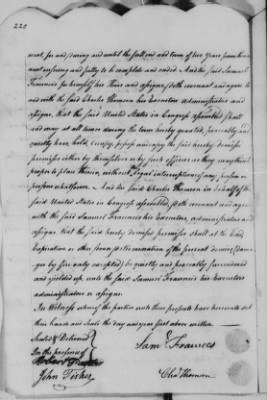 220
next for and during and until the full end and term of two Years from thence
next ensuing and fully to be complete and ended And the said Samuel
Fraunces for himself his Heirs and assigns, doth covenant and agree to
and with the said Charles Thomson his Executors Administrators and
assigns, that the said United States in Congress assembled shall
and may at all times during the term hereby granted, peaceably and
quietly have, hold, occupy, possess and enjoy the said hereby demised
premises either by themselves or by such officers as they may think
proper to place therein, without legal interruption of any person or
persons whatsoever. And the said Charles Thomson in behalf of the
said United States in Congress assembled, doth covenant and agree
with the said Samuel Fraunces his Executors, Administrators and
assigns that the said hereby demised premises shall at the
Expiration or other sooner determination of the present demise (
by fire only excepted) be quietly and peaceably surrendered
and yielded up unto the said Samuel Fraunces his Executors
administrators or assigns.
In Witness whereof the parties unto these presents have hereunto set
their hands and seals the day and year first above written
Sealed & Delivered
In the presence of
Sam Fraunces
John Fisher
Chas Thomson